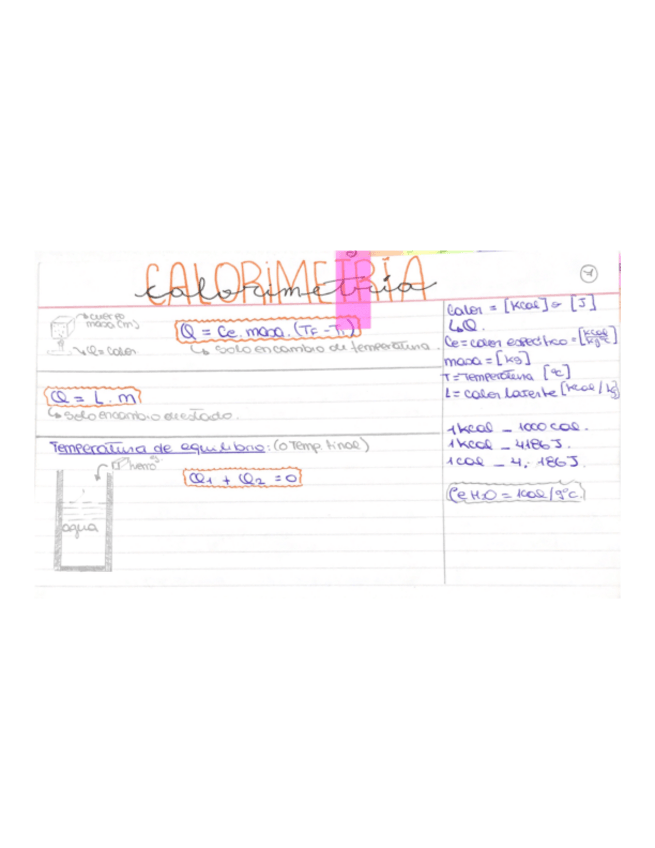 CALORIMETRÍA
calorimetria
cuerpo
masa (m)
Q = calor
Q = Ce. masa. (TF - Ti)
Solo en cambio de temperatura.
Q = L. m
Solo en cambio de estado.
Temperatura de equilibrio: (o Temp. final)
hierro
agua
Q1 + Q2 = 0
Calor = [Kcal] o [J]
Q.
Ce = calor especifico = [kcal/kg°C]
masa = [kg]
T = Temperatura [°C]
L = calor latente [kcal/kg]
1 kcal _ 1000 cal.
1 kcal _ 4186 J.
1 cal _ 4,186 J.
Ce H2O = 1cal/g°c.